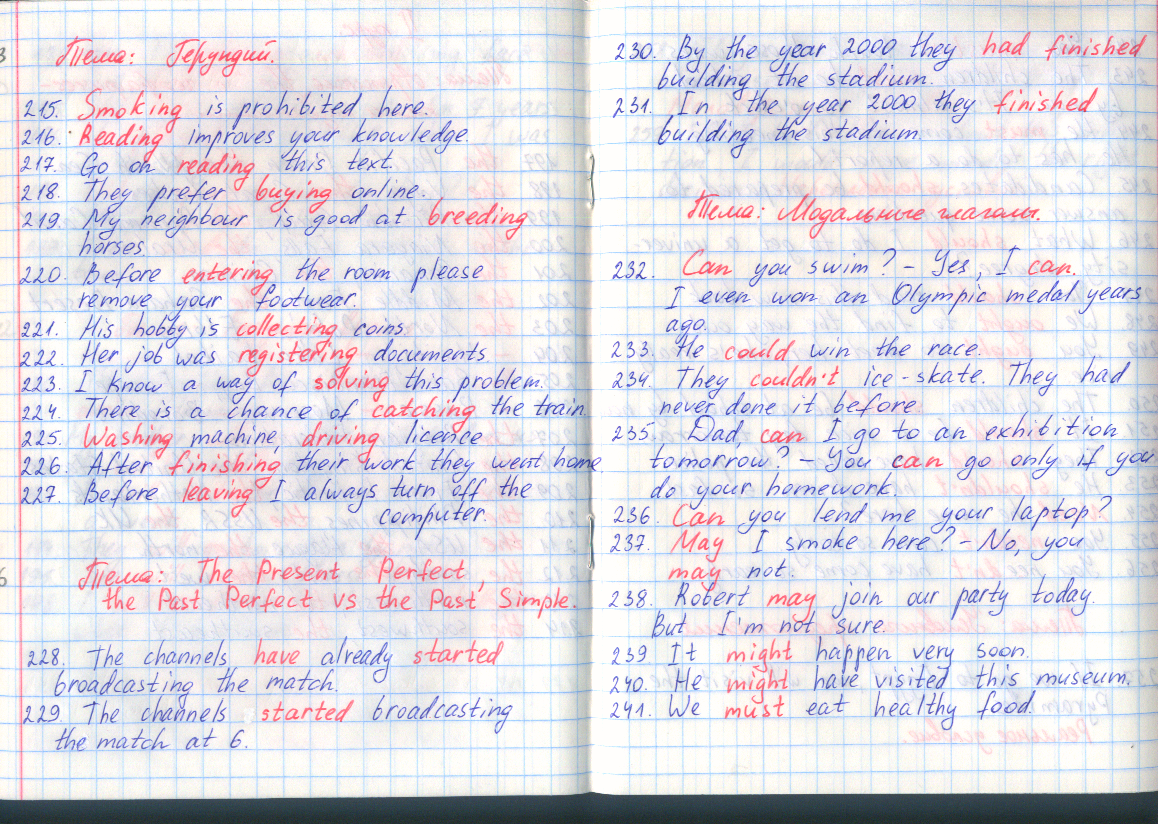 Тема: Герундий.
215. Smoking is prohibited here.
216. Reading improves your knowledge.
217. Go on reading this text.
218. They prefer buying online.
219. My neighbour is good at breeding
horses.
220. Before entering the room please
remove your footwear.
221. His hobby is collecting coins.
222. Her job was registering documents
223. I know a way of solving this problem.
224. There is a chance of catching the train.
225. Washing machine, driving licence
226. After finishing their work they went home.
227. Before leaving I always turn off the
computer.
Тема: The Present Perfect,
the Past Perfect vs the Past Simple.
228. The channels have already started
broadcasting the match.
229. The channels started broadcasting
the match at 6.
230. By the year 2000 they had finished
building the stadium.
231. In the year 2000 they finished
building the stadium.
Тема: Модальные глаголы.
232. Can you swim? - Yes, I can.
I even won an Olympic medal years
ago.
233. He could win the race.
234. They couldn't ice-skate. They had
never done it before.
235. Dad, can I go to an exhibition
tomorrow? - You can go only if you
do your homework.
236. Can you lend me your laptop?
237. May I smoke here? - No, you
may not.
238. Robert may join our party today.
But I'm not sure.
239. It might happen very soon.
240. He might have visited this museum.
241. We must eat healthy food.